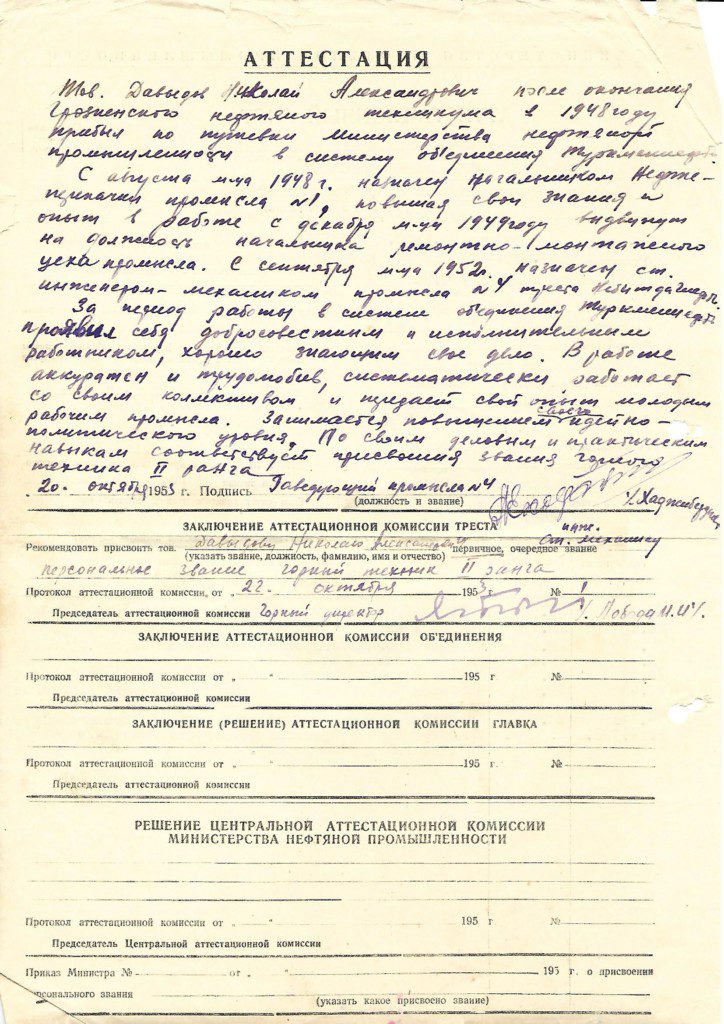 АТТЕСТАЦИЯ
Тов. Давыдов Николай Александрович после окончания
Грозненского нефтяного техникума в 1948 году
прибыл по путевки Министерства нефтяной
промышленности в систему объединения Туркменнефть
С августа м-ца 1948 г. назначен начальником Нефте-
перекачки промысла №1, повышая свои знания и
опыт в работе с декабря м-ца 1949 году выдвинут
на должность начальника ремонтно-монтажного
цеха промысла. С сентября м-ца 1952г. назначен ст.
инженером-механиком промысла №4 треста Небитдагнефть
За период работы в систем объединения Туркменнефть
проявил себя добросовестным и исполнительным
работником, хорошо знающим свое дело. В работе
аккуратен и трудолюбив, систематически работает
со своим коллективом и предает свой опыт молодым
рабочим промысла. Занимается повышением своего идейно-
политического уровня. По своим деловым и практическим
навыкам соответствует присвоения звания горного
техника II ранга
„20„ октября 1953 г. Подпись Заведующий промысла №4
(должность и звание)
/Хаджибердыев
ЗАКЛЮЧЕНИЕ АТТЕСТАЦИОННОЙ КОМИССИИ ТРЕСТА
инже.
ст. механику
Рекомендовать присвоить тов. Давыдову Николаю Александровичу первичное, очередное звание
(указать звание, должность, фамилию, имя и отчество)
персональное звание горный техник II ранга
Протокол аттестационной комиссии от „ 22. " октября 1953 г. № 1
Председатель аттестационной комиссии Горный директор / Победа И.И/.
ЗАКЛЮЧЕНИЕ АТТЕСТАЦИОННОЙ КОМИССИИ ОБ'ЕДИНЕНИЯ
Протокол аттестационной комиссии от „ " 195 г №
Председатель аттестационной комиссии
ЗАКЛЮЧЕНИЕ (РЕШЕНИЕ) АТТЕСТАЦИОННОЙ КОМИССИИ ГЛАВКА
Протокол аттестационной комиссии от „ " 195 г. №
Председатель аттестационной комиссии
РЕШЕНИЕ ЦЕНТРАЛЬНОЙ АТТЕСТАЦИОННОЙ КОМИССИИ
МИНИСТЕРСТВА НЕФТЯНОЙ ПРОМЫШЛЕННОСТИ
Протокол аттестационной комиссии от „ " 195 г №
Председатель Центральной аттестационной комиссии
Приказ Министра № от „ " 195 г. о присвоении
персонального звания
(указать какое присвоено звание)